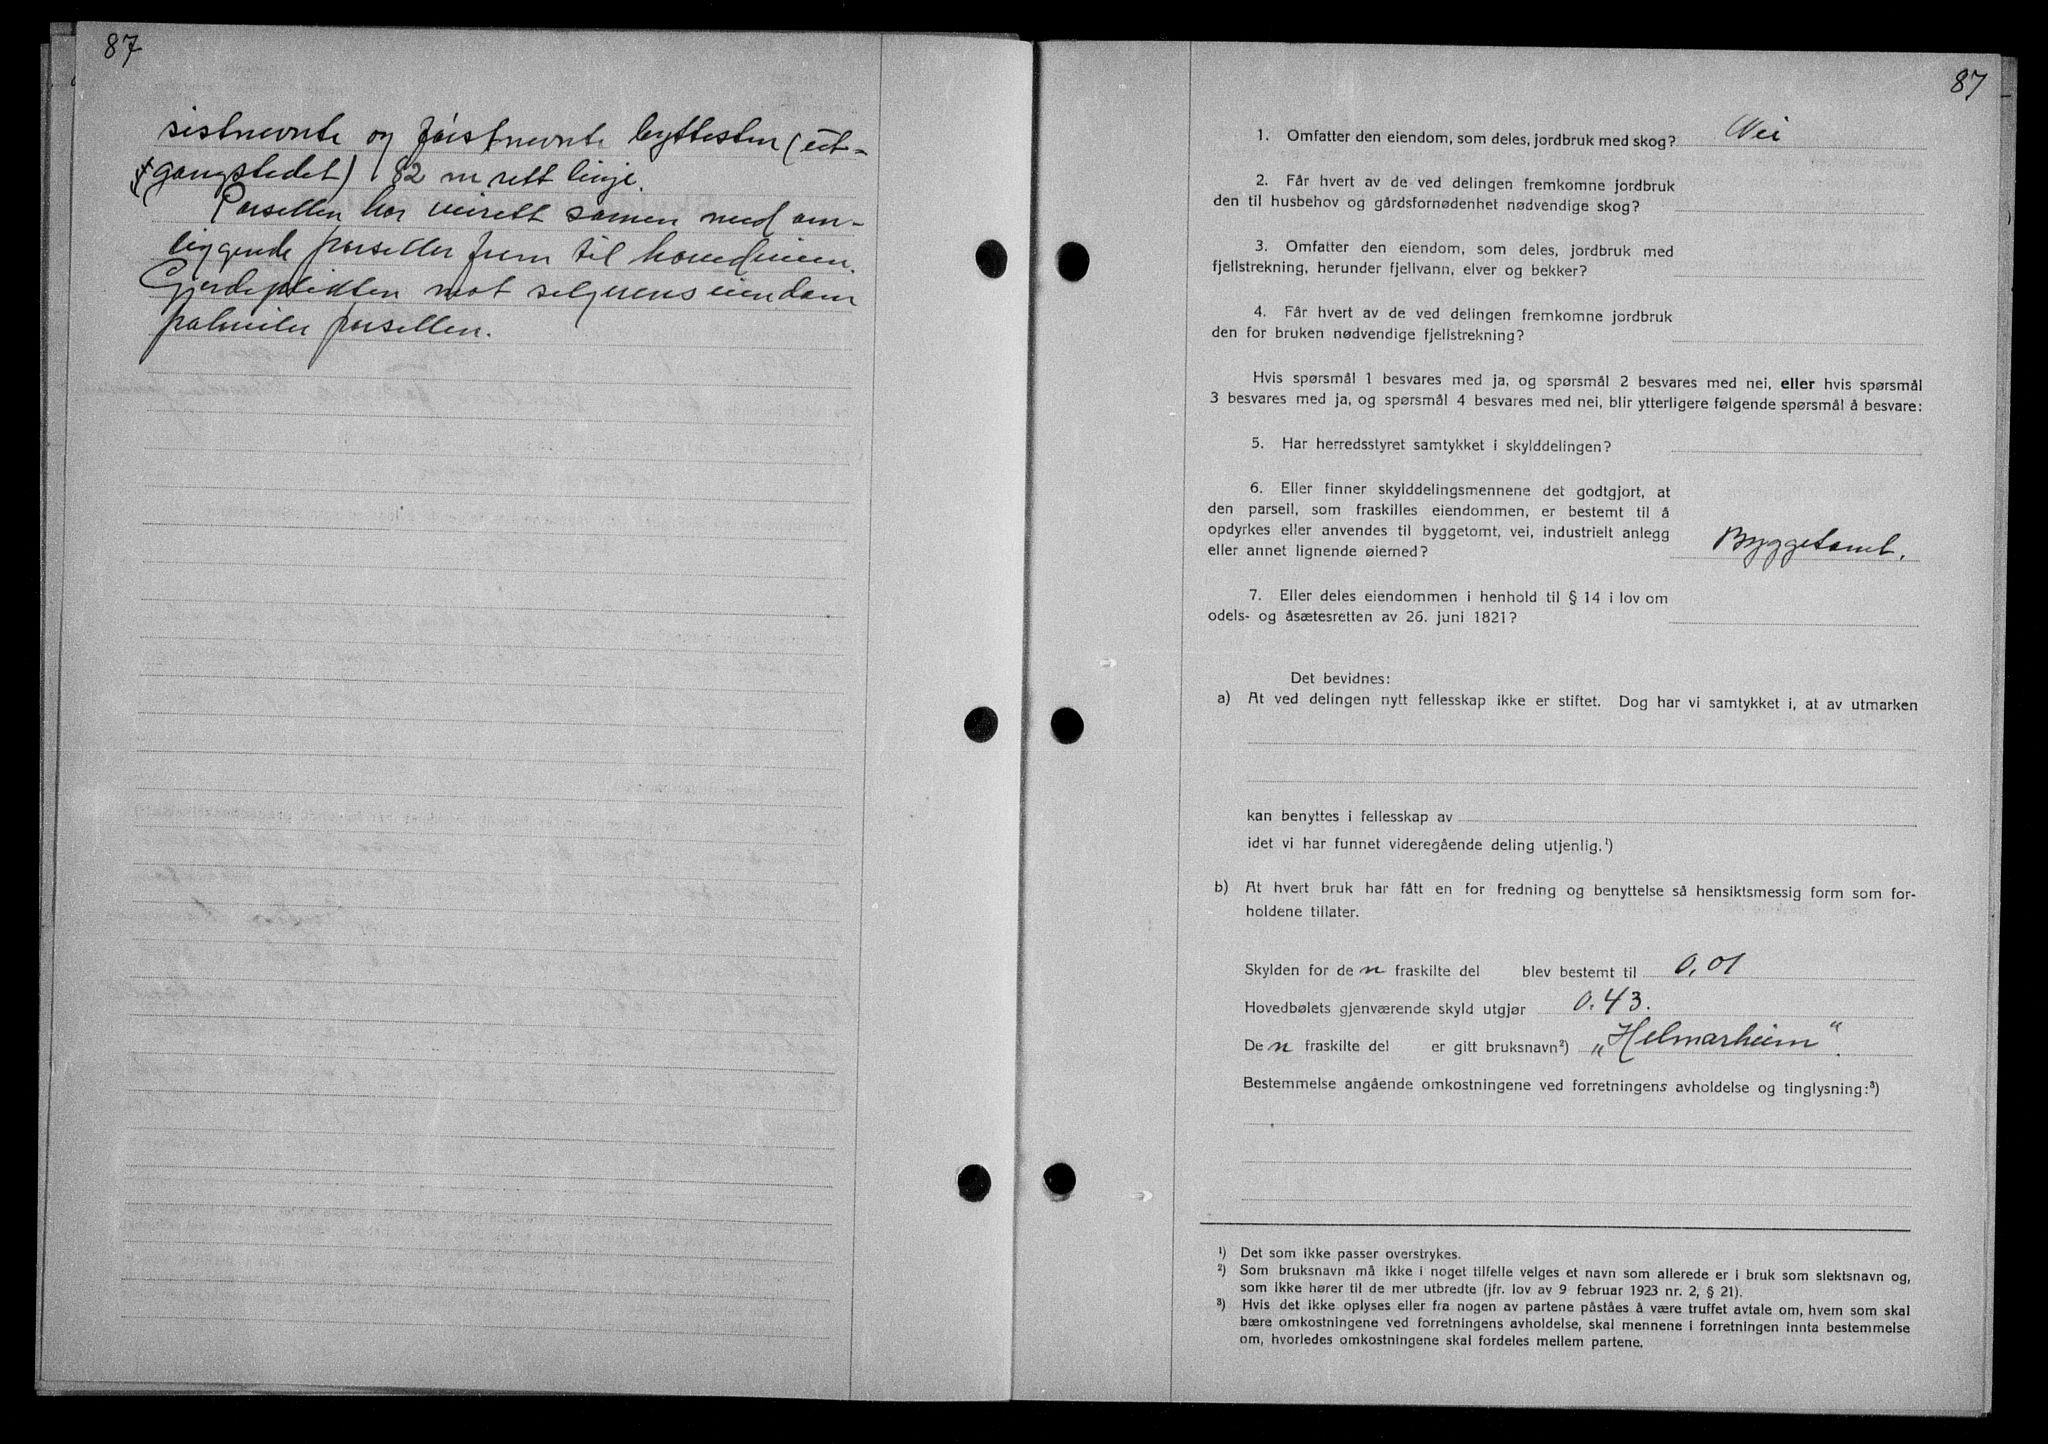 87
sistnevnte og førstnevnte byttesten (ut-
gangstedet) 82 m rett linje.
Parsellen har veirett samen med om-
liggende parseller frem til hovedveien.
Gjerdeplikten mot selgerens eiendom
påhviler parsellen.
87
1. Omfatter den eiendom, som deles, jordbruk med skog? Nei
2. Får hvert av de ved delingen fremkomne jordbruk
den til husbehov og gårdsfornødenhet nødvendige skog?
3. Omfatter den eiendom, som deles, jordbruk med
fjellstrekning, herunder fjellvann, elver og bekker?
4. Får hvert av de ved delingen fremkomne jordbruk
den for bruken nødvendige fjellstrekning?
Hvis spørsmål 1 besvares med ja, og spørsmål 2 besvares med nei, eller hvis spørsmål
3 besvares med ja, og spørsmål 4 besvares med nei, blir ytterligere følgende spørsmål å besvare:
5. Har herredsstyret samtykket i skylddelingen?
6. Eller finner skylddelingsmennene det godtgjort, at
den parsell, som fraskilles eiendommen, er bestemt til å
opdyrkes eller anvendes til byggetomt, vei, industrielt anlegg
eller annet lignende øiemed? Byggetomt.
7. Eller deles eiendommen i henhold til § 14 i lov om
odels- og åsætesretten av 26. juni 1821?
Det bevidnes:
a) At ved delingen nytt fellesskap ikke er stiftet. Dog har vi samtykket i, at av utmarken
kan benyttes i fellesskap av
idet vi har funnet videregående deling utjenlig.¹)
b) At hvert bruk har fått en for fredning og benyttelse så hensiktsmessig form som for-
holdene tillater.
Skylden for de n fraskilte del blev bestemt til 0,01
Hovedbølets gjenværende skyld utgjør 0.43.
De n fraskilte del er gitt bruksnavn²) „Helmarheim“.
Bestemmelse angående omkostningene ved forretningens avholdelse og tinglysning:³)
¹) Det som ikke passer overstrykes.
²) Som bruksnavn må ikke i noget tilfelle velges et navn som allerede er i bruk som slektsnavn og,
som ikke hører til de mer utbredte (jfr. lov av 9 februar 1923 nr. 2, § 21).
³) Hvis det ikke oplyses eller fra nogen av partene påståes å være truffet avtale om, hvem som skal
bære omkostningene ved forretningens avholdelse, skal mennene i forretningen innta bestemmelse
om, hvorledes omkostningene skal fordeles mellem partene.